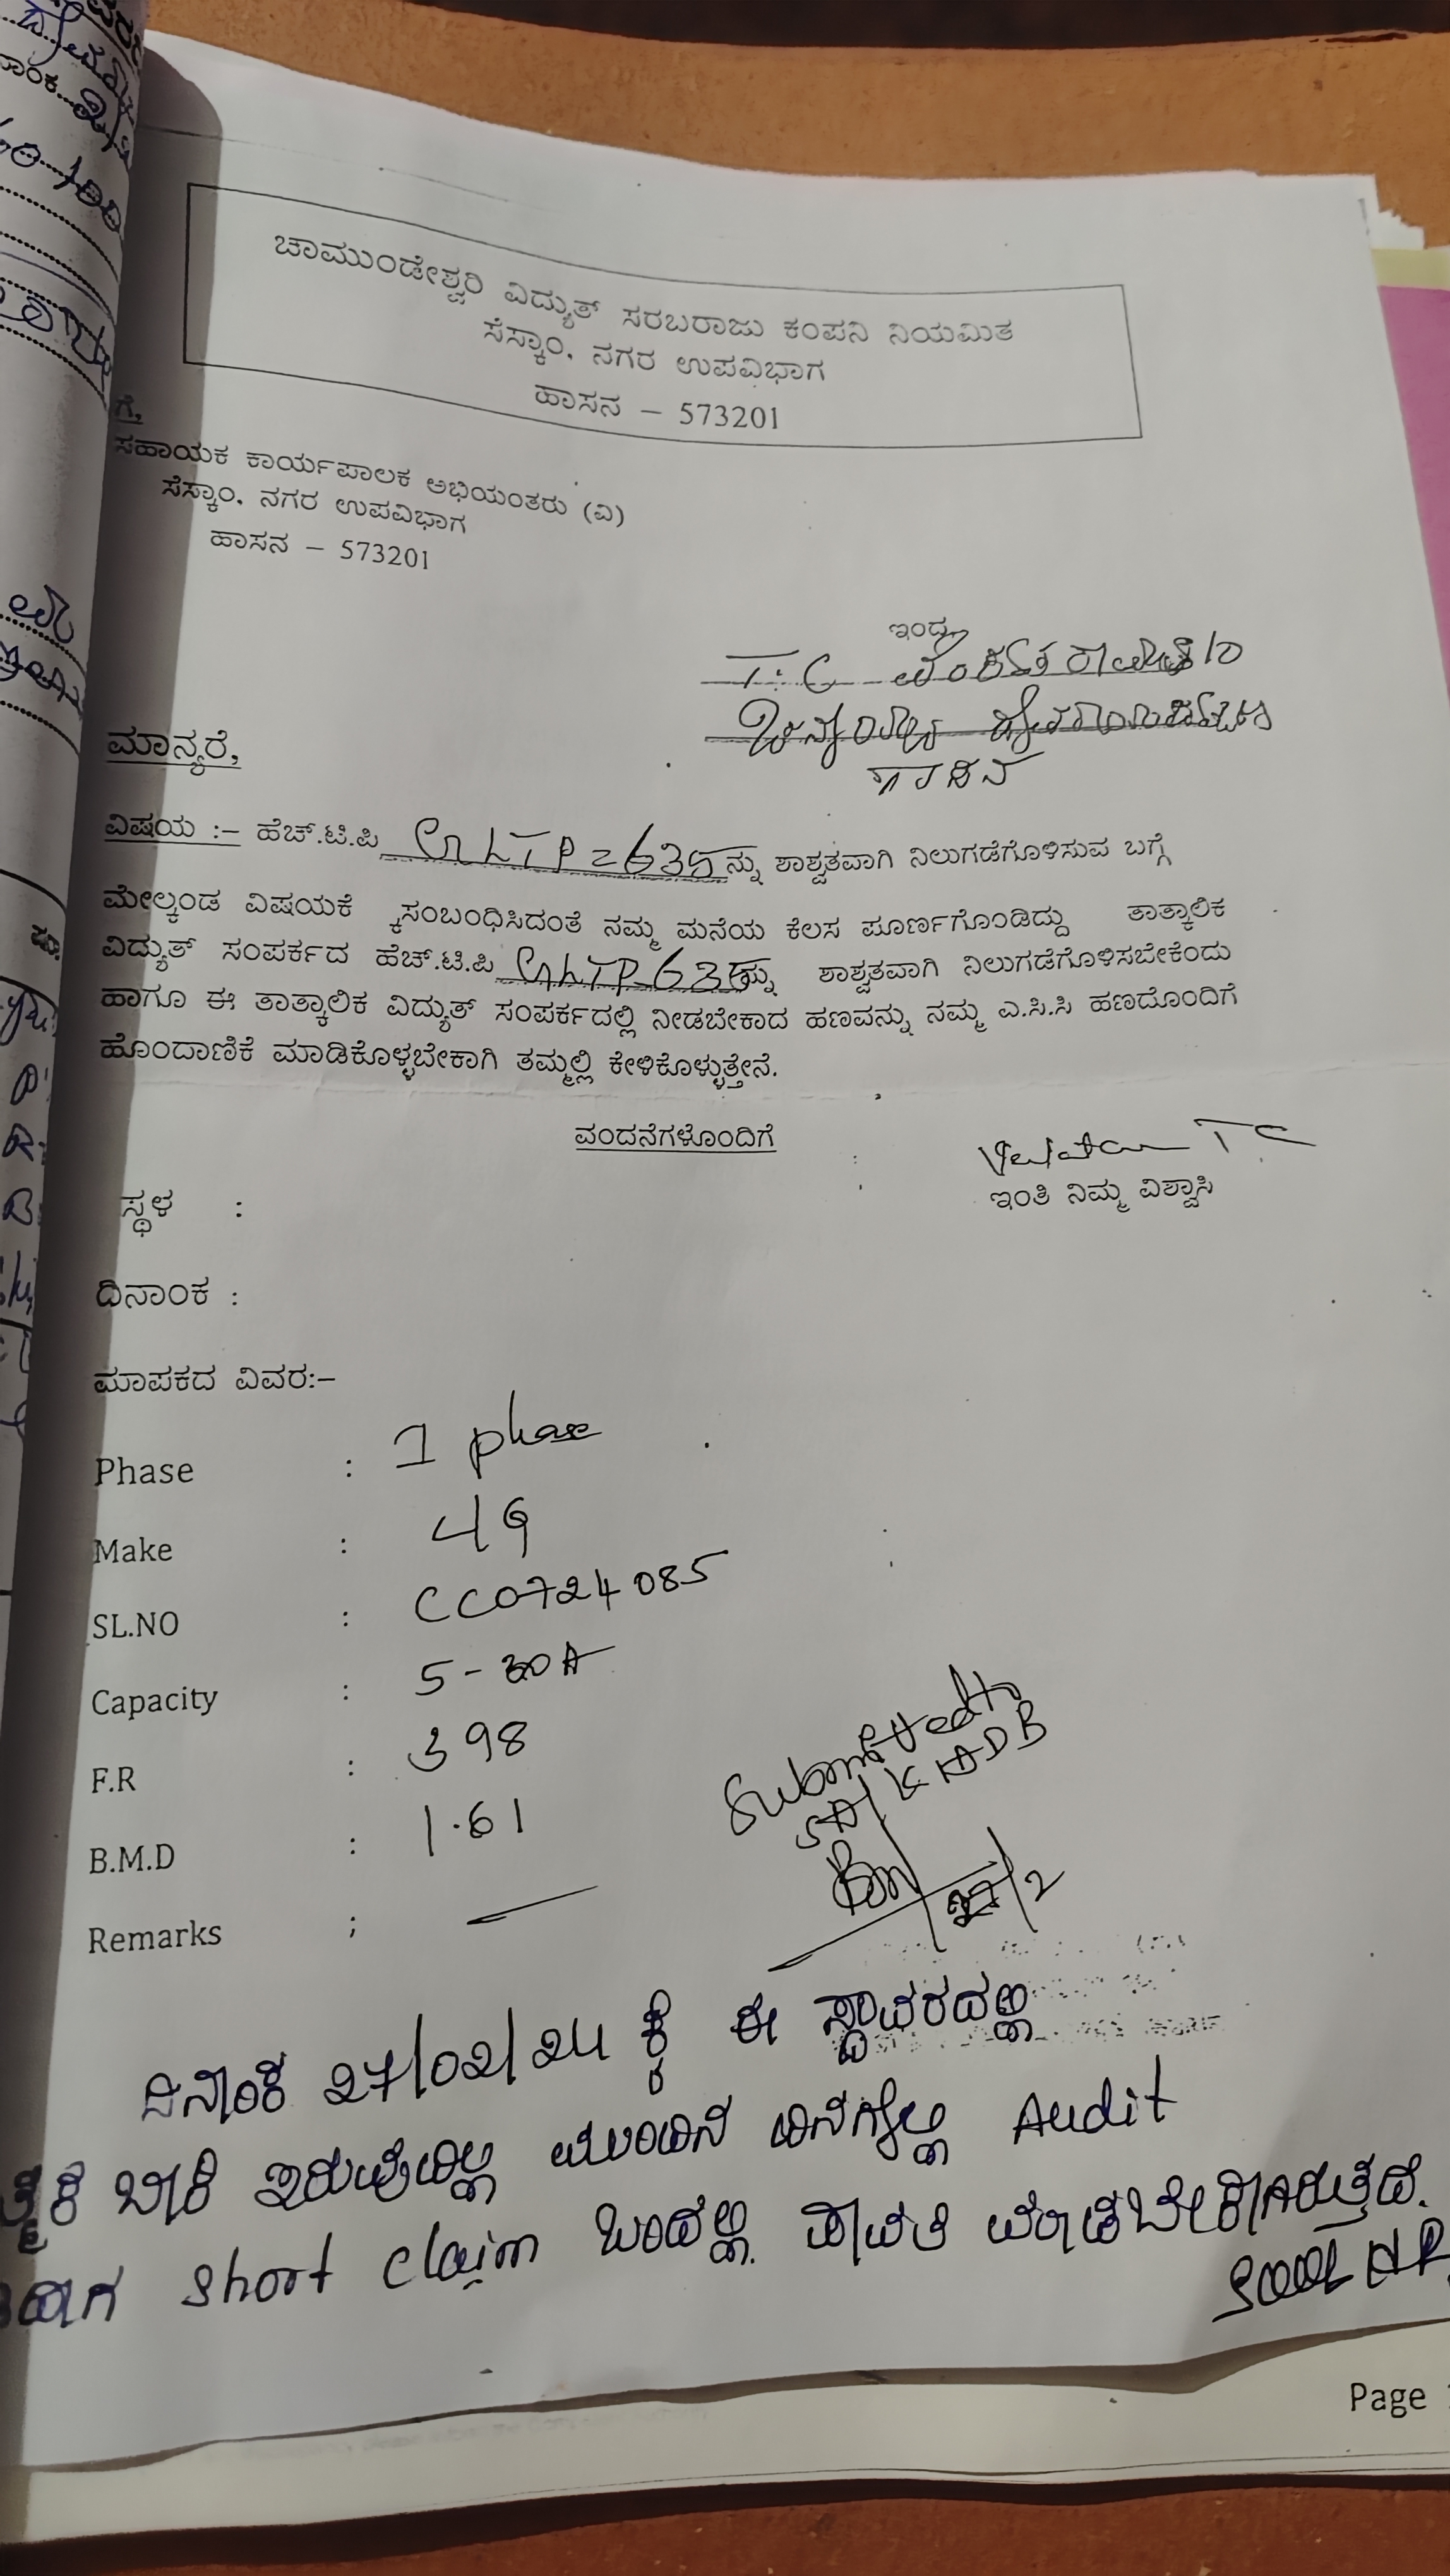 ಚಾಮುಂಡೇಶ್ವರಿ ವಿದ್ಯುತ್ ಸರಬರಾಜು ಕಂಪನಿ ನಿಯಮಿತ
ಸೆಸ್ಕಾಂ, ನಗರ ಉಪವಿಭಾಗ
ಹಾಸನ – 573201
ಗೆ,
ಸಹಾಯಕ ಕಾರ್ಯಪಾಲಕ ಅಭಿಯಂತರು (ವಿ)
ಸೆಸ್ಕಾಂ, ನಗರ ಉಪವಿಭಾಗ
ಹಾಸನ – 573201
ಇಂದ,
T.C
ಹಾಸನ
ಮಾನ್ಯರೆ,
ವಿಷಯ :– ಹೆಚ್.ಟಿ.ಪಿ LTP=635 ನ್ನು ಶಾಶ್ವತವಾಗಿ ನಿಲುಗಡೆಗೊಳಿಸುವ ಬಗ್ಗೆ
ಮೇಲ್ಕಂಡ ವಿಷಯಕೆ ್ಕಸಂಬಂಧಿಸಿದಂತೆ ನಮ್ಮ ಮನೆಯ ಕೆಲಸ ಪೂರ್ಣಗೊಂಡಿದ್ದು ತಾತ್ಕಾಲಿಕ
ವಿದ್ಯುತ್ ಸಂಪರ್ಕದ ಹೆಚ್.ಟಿ.ಪಿ LTP-635 ನ್ನು ಶಾಶ್ವತವಾಗಿ ನಿಲುಗಡೆಗೊಳಿಸಬೇಕೆಂದು
ಹಾಗೂ ಈ ತಾತ್ಕಾಲಿಕ ವಿದ್ಯುತ್ ಸಂಪರ್ಕದಲ್ಲಿ ನೀಡಬೇಕಾದ ಹಣವನ್ನು ನಮ್ಮ ಎ.ಸಿ.ಸಿ ಹಣದೊಂದಿಗೆ
ಹೊಂದಾಣಿಕೆ ಮಾಡಿಕೊಳ್ಳಬೇಕಾಗಿ ತಮ್ಮಲ್ಲಿ ಕೇಳಿಕೊಳ್ಳುತ್ತೇನೆ.
ವಂದನೆಗಳೊಂದಿಗೆ
ಇಂತಿ ನಿಮ್ಮ ವಿಶ್ವಾಸಿ
ಸ್ಥಳ :
ದಿನಾಂಕ :
ಮಾಪಕದ ವಿವರ:–
Phase : 1 phase
Make : LG
SL.NO : CC0724085
Capacity : 5-30A
F.R : 398
B.M.D : 1.61
Remarks ; —
Submitted to
SA/KIADB
22/2
ದಿನಾಂಕ 27/02/24 ಕ್ಕೆ ಈ ಸ್ಥಾವರದಲ್ಲಿ
ಬಾಕಿ ಇರುವುದಿಲ್ಲ ಮುಂದಿನ ದಿನಗಳಲ್ಲಿ Audit
Short claim ಬಂದಲ್ಲಿ ಪಾವತಿ ಮಾಡಬೇಕಾಗಿರುತ್ತದೆ.
Page